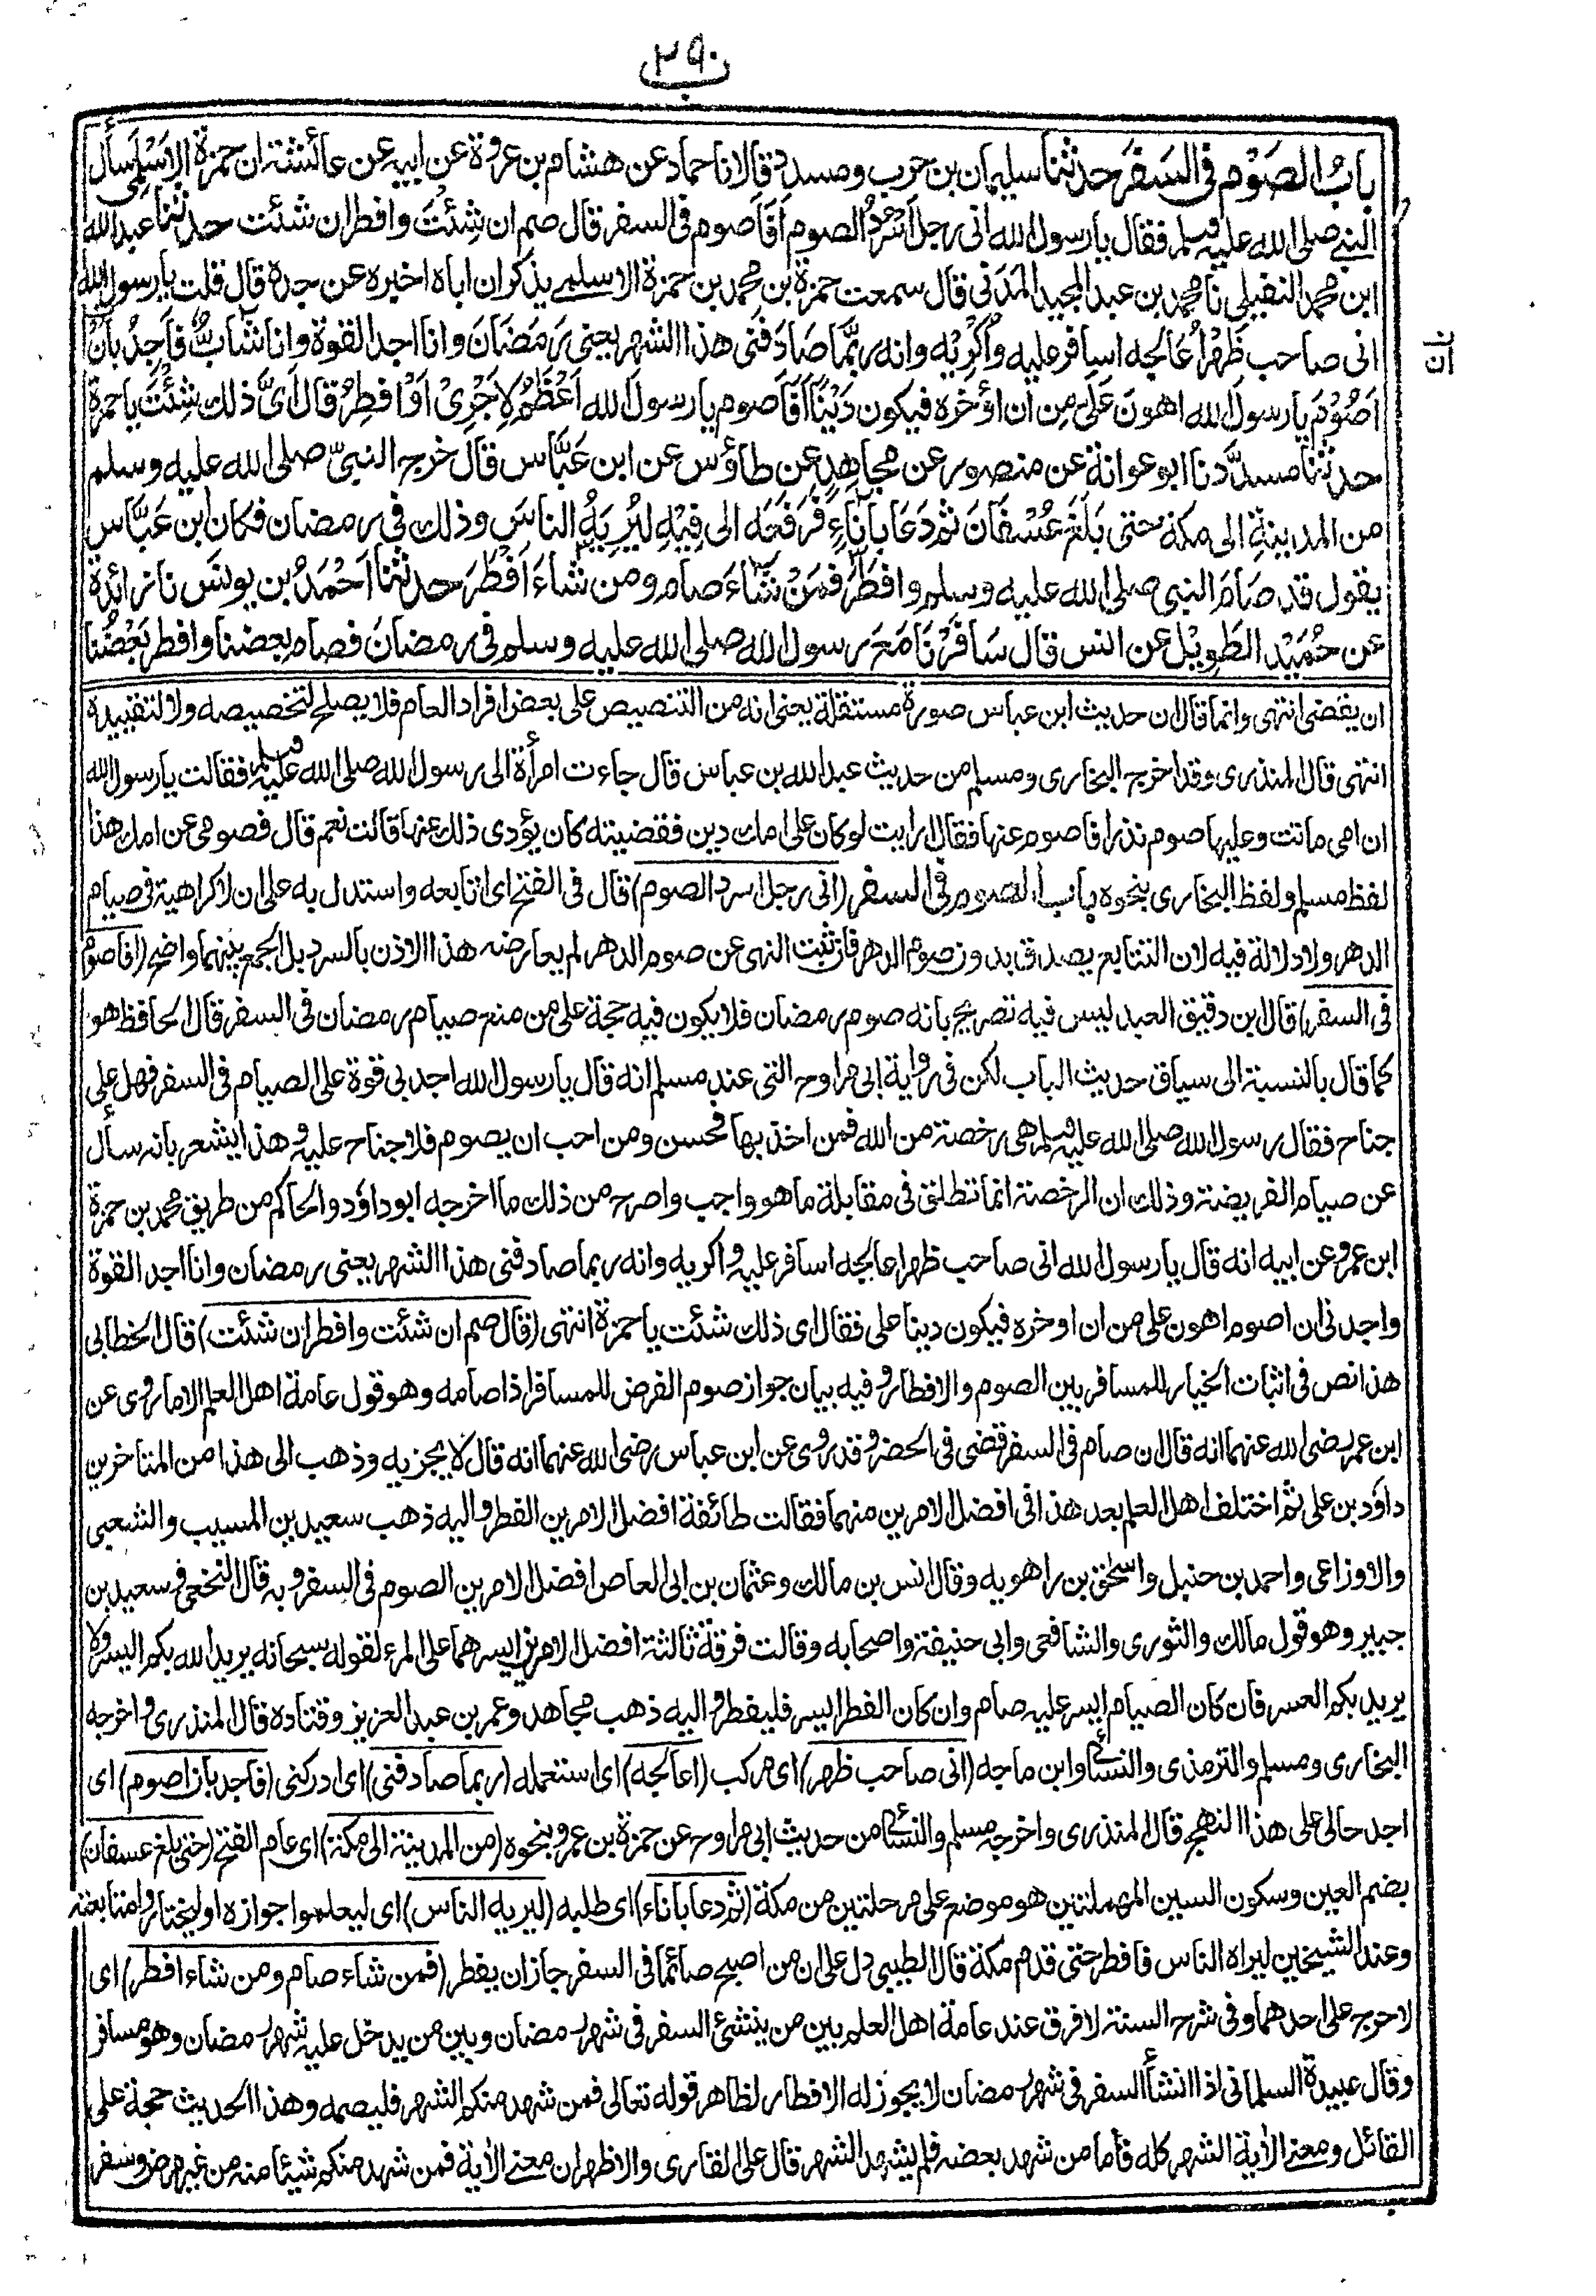 ٢٩٠
باب الصَّوْم فى السَفَر حدثنا سليمان بن حرب ومسدد قالا نا حماد عن هشام بن عروة عن ابيه عن عائشة ان حمزة الاسلمى سأل
النبى صلى الله عليه وسلم فقال يا رسول الله انى رجل اَسْرُدُ الصوم اَفَاَصوم فى السفر قال صم ان شِئْتَ وافطر ان شئت حدثنا عبد الله
ابن محمد النفيلى نا محمد بن عبد المجيد المَدَنى قال سمعت حمزة بن محمد بن حمزة الاسلمى يذكر ان اباه اخبره عن جده قال قلت يا رسول الله
انى صاحب ظَهْرٍ اُعَالجه اسافر عليه واُكْرِيْه وانه ربَّما صَادَفَنى هذا الشهر يعنى رَمَضَانَ وانا اجد القوة وانا شَابٌّ فَاَجِدُ بِاَنْ
ان
اَصُوْمَ يا رسولَ الله اهونَ عَلَىَّ مِن ان اؤَخِّره فيكون دَيْنًا اَفَاَصوم يا رسولَ الله اَعْظَمُ لِاَجْرِىْ اَوْ اُفطِرُ قال اَىَّ ذلك شِئْتَ يا حمزة
حدثنا مسدَّد نا ابو عوانة عن منصور عن مجاهدٍ عن طاؤس عن ابن عَبَّاس قال خرج النبىّ صلى الله عليه وسلم
من المدينةِ الى مكة حتى بَلَغَ عُسْفَانَ ثم دَعَا بِاِنَاءٍ فَرَفَعَه الى فِيْهِ لِيُرِيَهُ الناسَ وذلك فى رمضان فكان ابن عَبَّاس
يقول قد صَامَ النبى صلى الله عليه وسلم وافطَرَ فمَنْ شَاءَ صام ومن شَاءَ اَفْطَرَ حدثنا اَحْمَدُ بن يونس نا زائدة
عن حُمَيْد الطَوِيْل عن انس قال سَافَرْنَا مَعَ رسول الله صلى الله عليه وسلم فى رمضانَ فصام بعضنا وافطر بَعْضُنا
ان يقضى انتهى وانما قال ان حديث ابن عباس صورة مستقلة يعنى انه من التنصيص على بعض افراد العام فلا يصلح لتخصيصه ولا لتقييده
انتهى قال المنذرى وقد اخرجه البخارى ومسلم من حديث عبد الله بن عباس قال جاءت امرأة الى رسول الله صلى الله عليه وسلم فقالت يا رسول الله
ان امى ماتت وعليها صوم نذر افاصوم عنها فقال ارايت لو كان على امك دين فقضيته كان يؤدى ذلك عنها قالت نعم قال فصومى عن امك هذا
لفظ مسلم ولفظ البخارى بنحوه باب الصوم فى السفر (انى رجل اسرد الصوم) قال فى الفتح اى اتابعه واستدل به على ان لا كراهية فى صيام
الدهر ولا دلالة فيه لان التتابع يصدق بدون صوم الدهر فان ثبت النهى عن صوم الدهر لم يعارضه هذا الاذن بالسرد بل الجمع بينهما واضح (افاصوم
فى السفر) قال ابن دقيق العيد ليس فيه تصريح بانه صوم رمضان فلا يكون فيه حجة على من منع صيام رمضان فى السفر قال الحافظ هو
كما قال بالنسبة الى سياق حديث الباب لكن فى رواية ابى مراوح التى عند مسلم انه قال يا رسول الله اجد بى قوة على الصيام فى السفر فهل على
جناح فقال رسول الله صلى الله عليه وسلم هى رخصة من الله فمن اخذ بها فحسن ومن احب ان يصوم فلا جناح عليه وهذا يشعر بانه سأل
عن صيام الفريضة وذلك ان الرخصة انما تطلق فى مقابلة ما هو واجب واصرح من ذلك ما اخرجه ابو داؤد والحاكم من طريق محمد بن حمزة
ابن عمرو عن ابيه انه قال يا رسول الله انى صاحب ظهر اعالجه اسافر عليه واكريه وانه ربما صادفنى هذا الشهر يعنى رمضان وانا اجد القوة
واجدنى ان اصوم اهون على من ان اوخره فيكون دينا على فقال اى ذلك شئت يا حمزة انتهى (قال صم ان شئت وافطر ان شئت) قال الخطابى
هذا نص فى اثبات الخيار للمسافر بين الصوم والافطار وفيه بيان جواز صوم الفرض للمسافر اذا صامه وهو قول عامة اهل العلم الا ما روى عن
ابن عمر رضى الله عنهما انه قال ان صام فى السفر قضى فى الحضر وقد روى عن ابن عباس رضى الله عنهما انه قال لا يجزيه وذهب الى هذا من المتاخرين
داؤد بن على ثم اختلف اهل العلم بعد هذا فى افضل الامرين منهما فقالت طائفة افضل الامرين الفطر واليه ذهب سعيد بن المسيب والشعبى
والاوزاعى واحمد بن حنبل واسحٰق بن راهويه وقال انس بن مالك وعثمان بن ابى العاص افضل الامرين الصوم فى السفر وبه قال النخعى وسعيد بن
جبير وهو قول مالك والثورى والشافعى وابى حنيفة واصحابه وقالت فرقة ثالثة افضل الامرين ايسرهما على المرء لقوله سبحانه يريد الله بكم اليسر ولا
يريد بكم العسر فان كان الصيام ايسر عليه صام وان كان الفطر ايسر فليفطر واليه ذهب مجاهد وعمر بن عبد العزيز وقتادة قال المنذرى واخرجه
البخارى ومسلم والترمذى والنسائى وابن ماجه (انى صاحب ظهر) اى مركب (اعالجه) اى استعمله (ربما صادفنى) اى ادركنى (فاجد بان اصوم) اى
اجد حالى على هذا النهج قال المنذرى واخرجه مسلم والنسائى من حديث ابى مراوح عن حمزة بن عمرو بنحوه (من المدينة الى مكة) اى عام الفتح (حتى بلغ عسفان)
بضم العين وسكون السين المهملتين هو موضع على مرحلتين من مكة (ثم دعا باناء) اى طلبه (ليريه الناس) اى ليعلموا جوازه او ليختاروا متابعته
وعند الشيخين ليراه الناس فافطر حتى قدم مكة قال الطيبى دل على ان من اصبح صائما فى السفر جاز ان يفطر (فمن شاء صام ومن شاء افطر) اى
لا حرج على احدهما وفى شرح السنة لا فرق عند عامة اهل العلم بين من ينشئ السفر فى شهر رمضان وبين من يدخل عليه شهر رمضان وهو مسافر
وقال عبيدة السلمانى اذا انشأ السفر فى شهر رمضان لا يجوز له الافطار لظاهر قوله تعالى فمن شهد منكم الشهر فليصمه وهذا الحديث حجة على
القائل ومعنى الاٰية الشهر كله فأما من شهد بعضه فلم يشهد الشهر قال على القارى والاظهر ان معنى الاٰية فمن شهد منكم شيئا منه من غير مرض وسفر